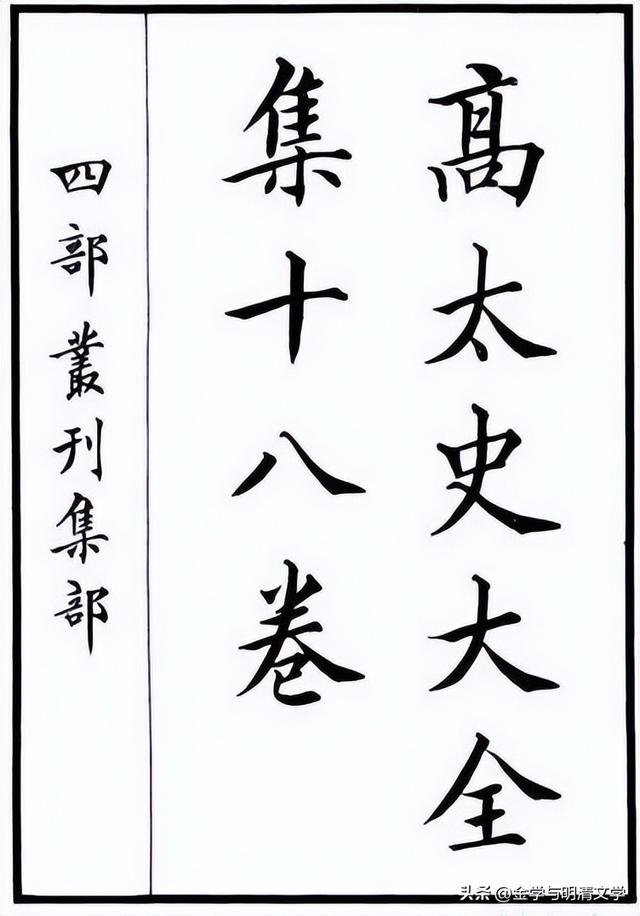 髙太史大全
集十八卷
四部叢刊集部
头条 @金学与明清文学